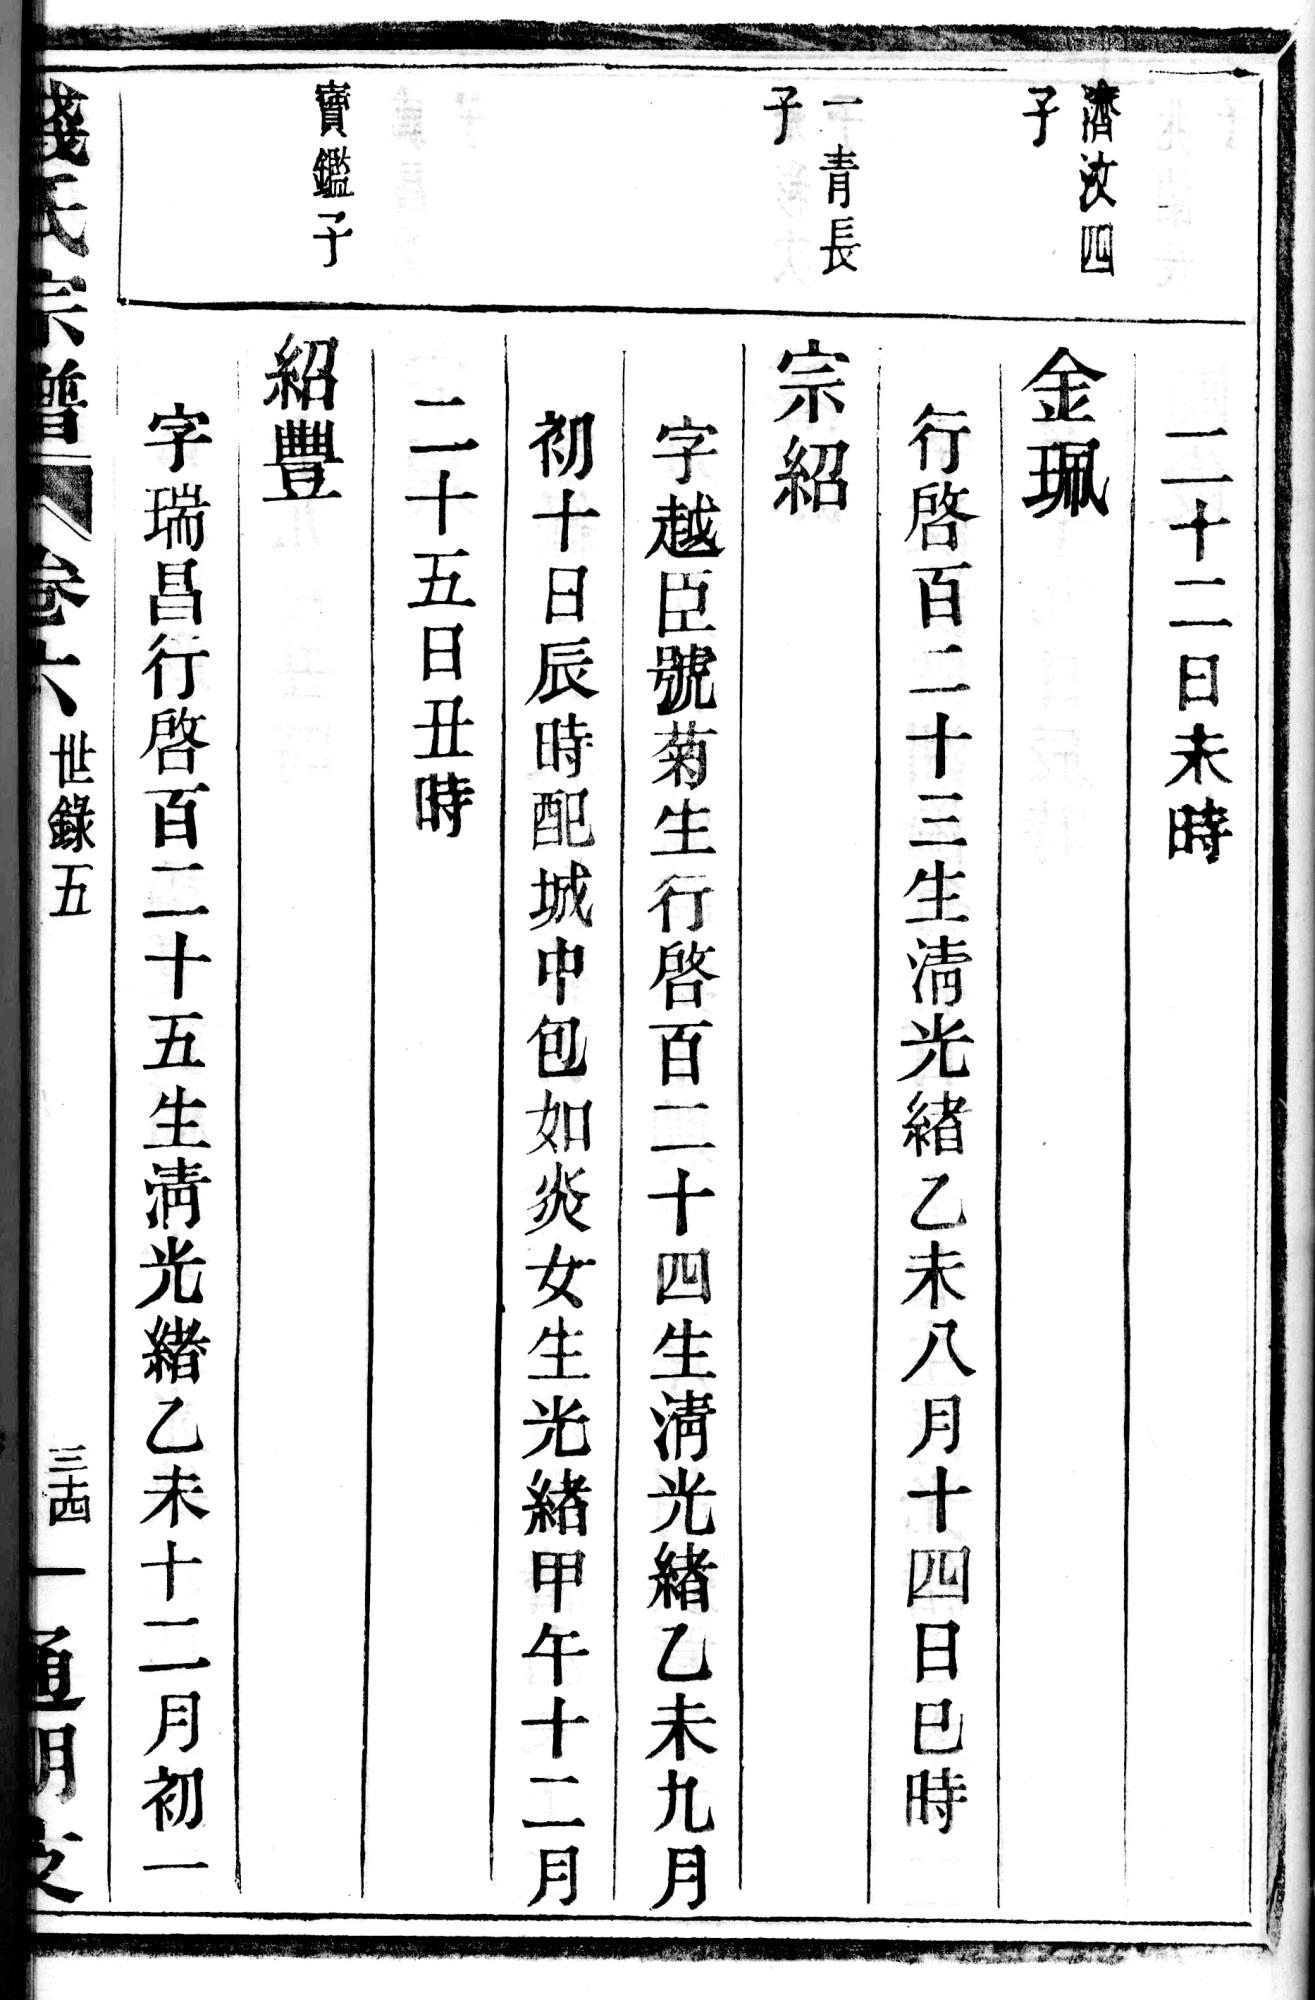 二十二日未時
濟汝四
子
金珮
行啓百二十三生淸光緒乙未八月十四日巳時
一青長
子
宗紹
字越臣號菊生行啓百二十四生淸光緒乙未九月
初十日辰時配城中包如炎女生光緒甲午十二月
二十五日丑時
寶鑑子
紹豐
字瑞昌行啓百二十五生淸光緒乙未十二月初一
錢氏宗譜 卷六 世錄五 三十四 通明支